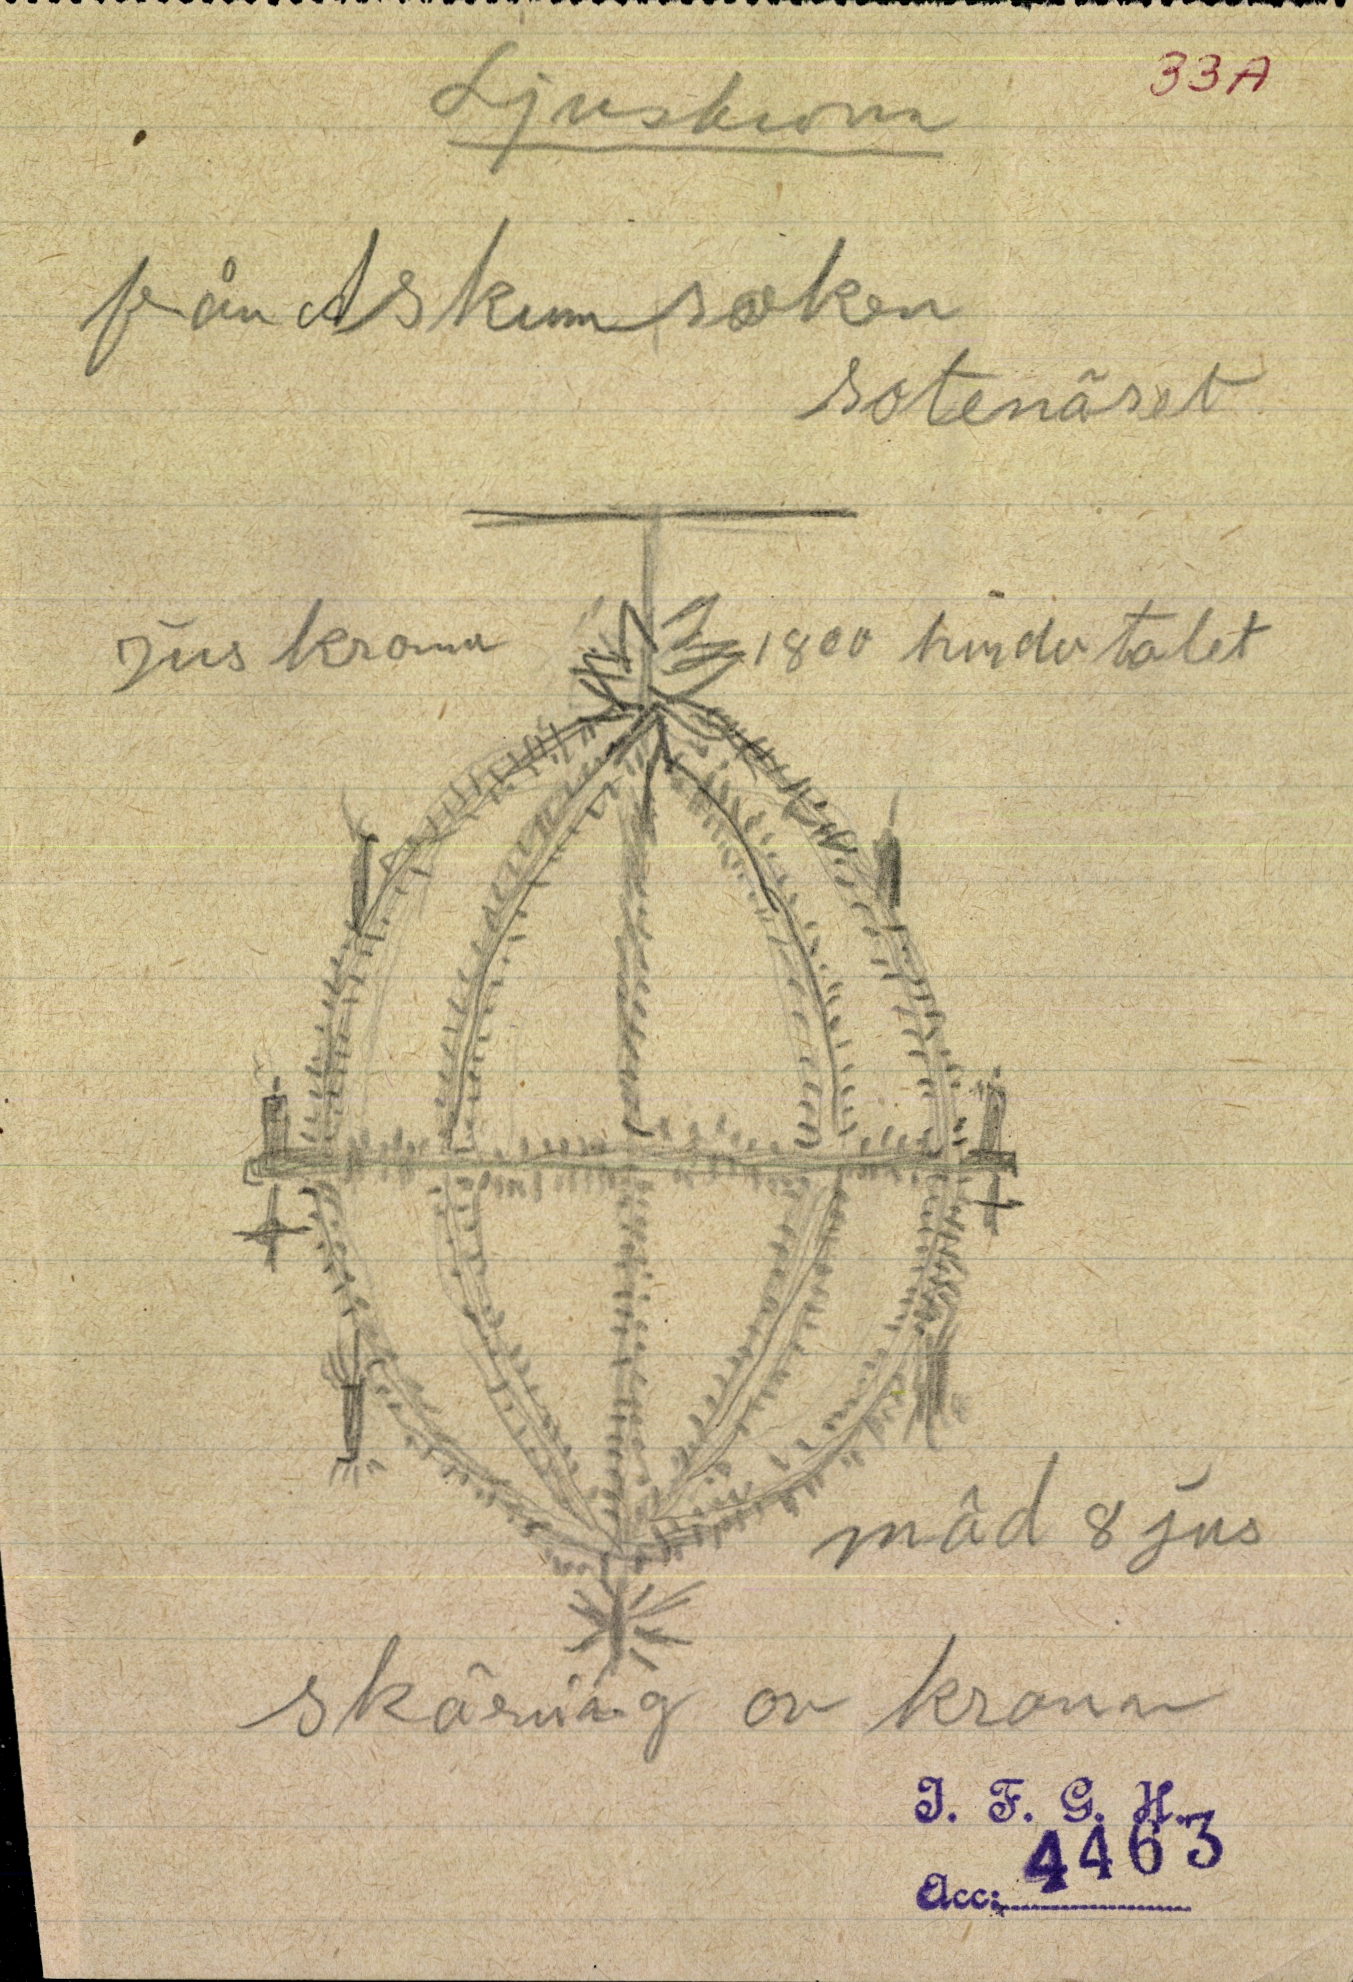 33A
Ljuskrona
från Askum soken
sotenäset
jus krona 1800 hundertalet
mäd 8 jus
skärning ov kronan
I. F. G. H.
Acc: 4463